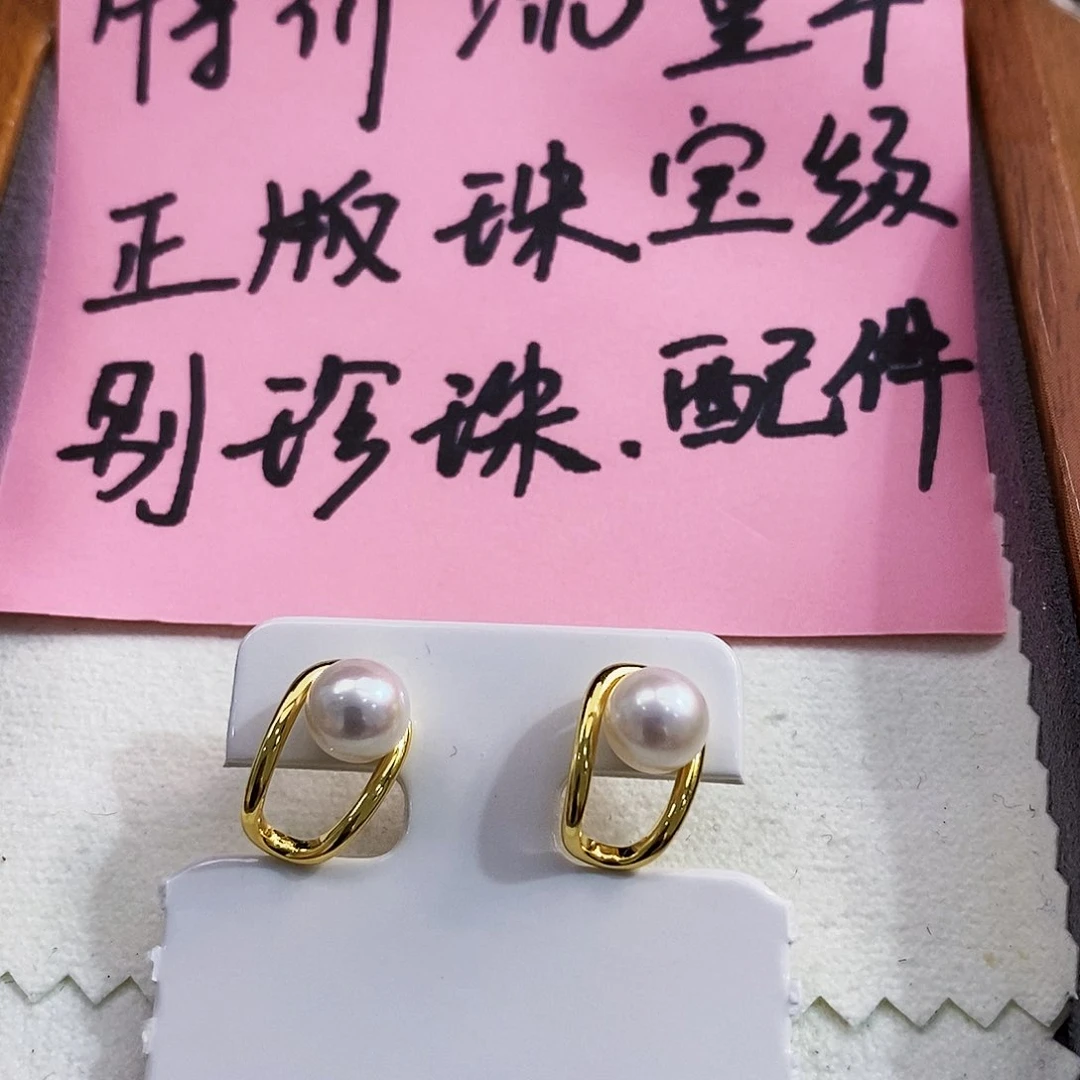 特价流量车
正版珠宝级
别珍珠.配件